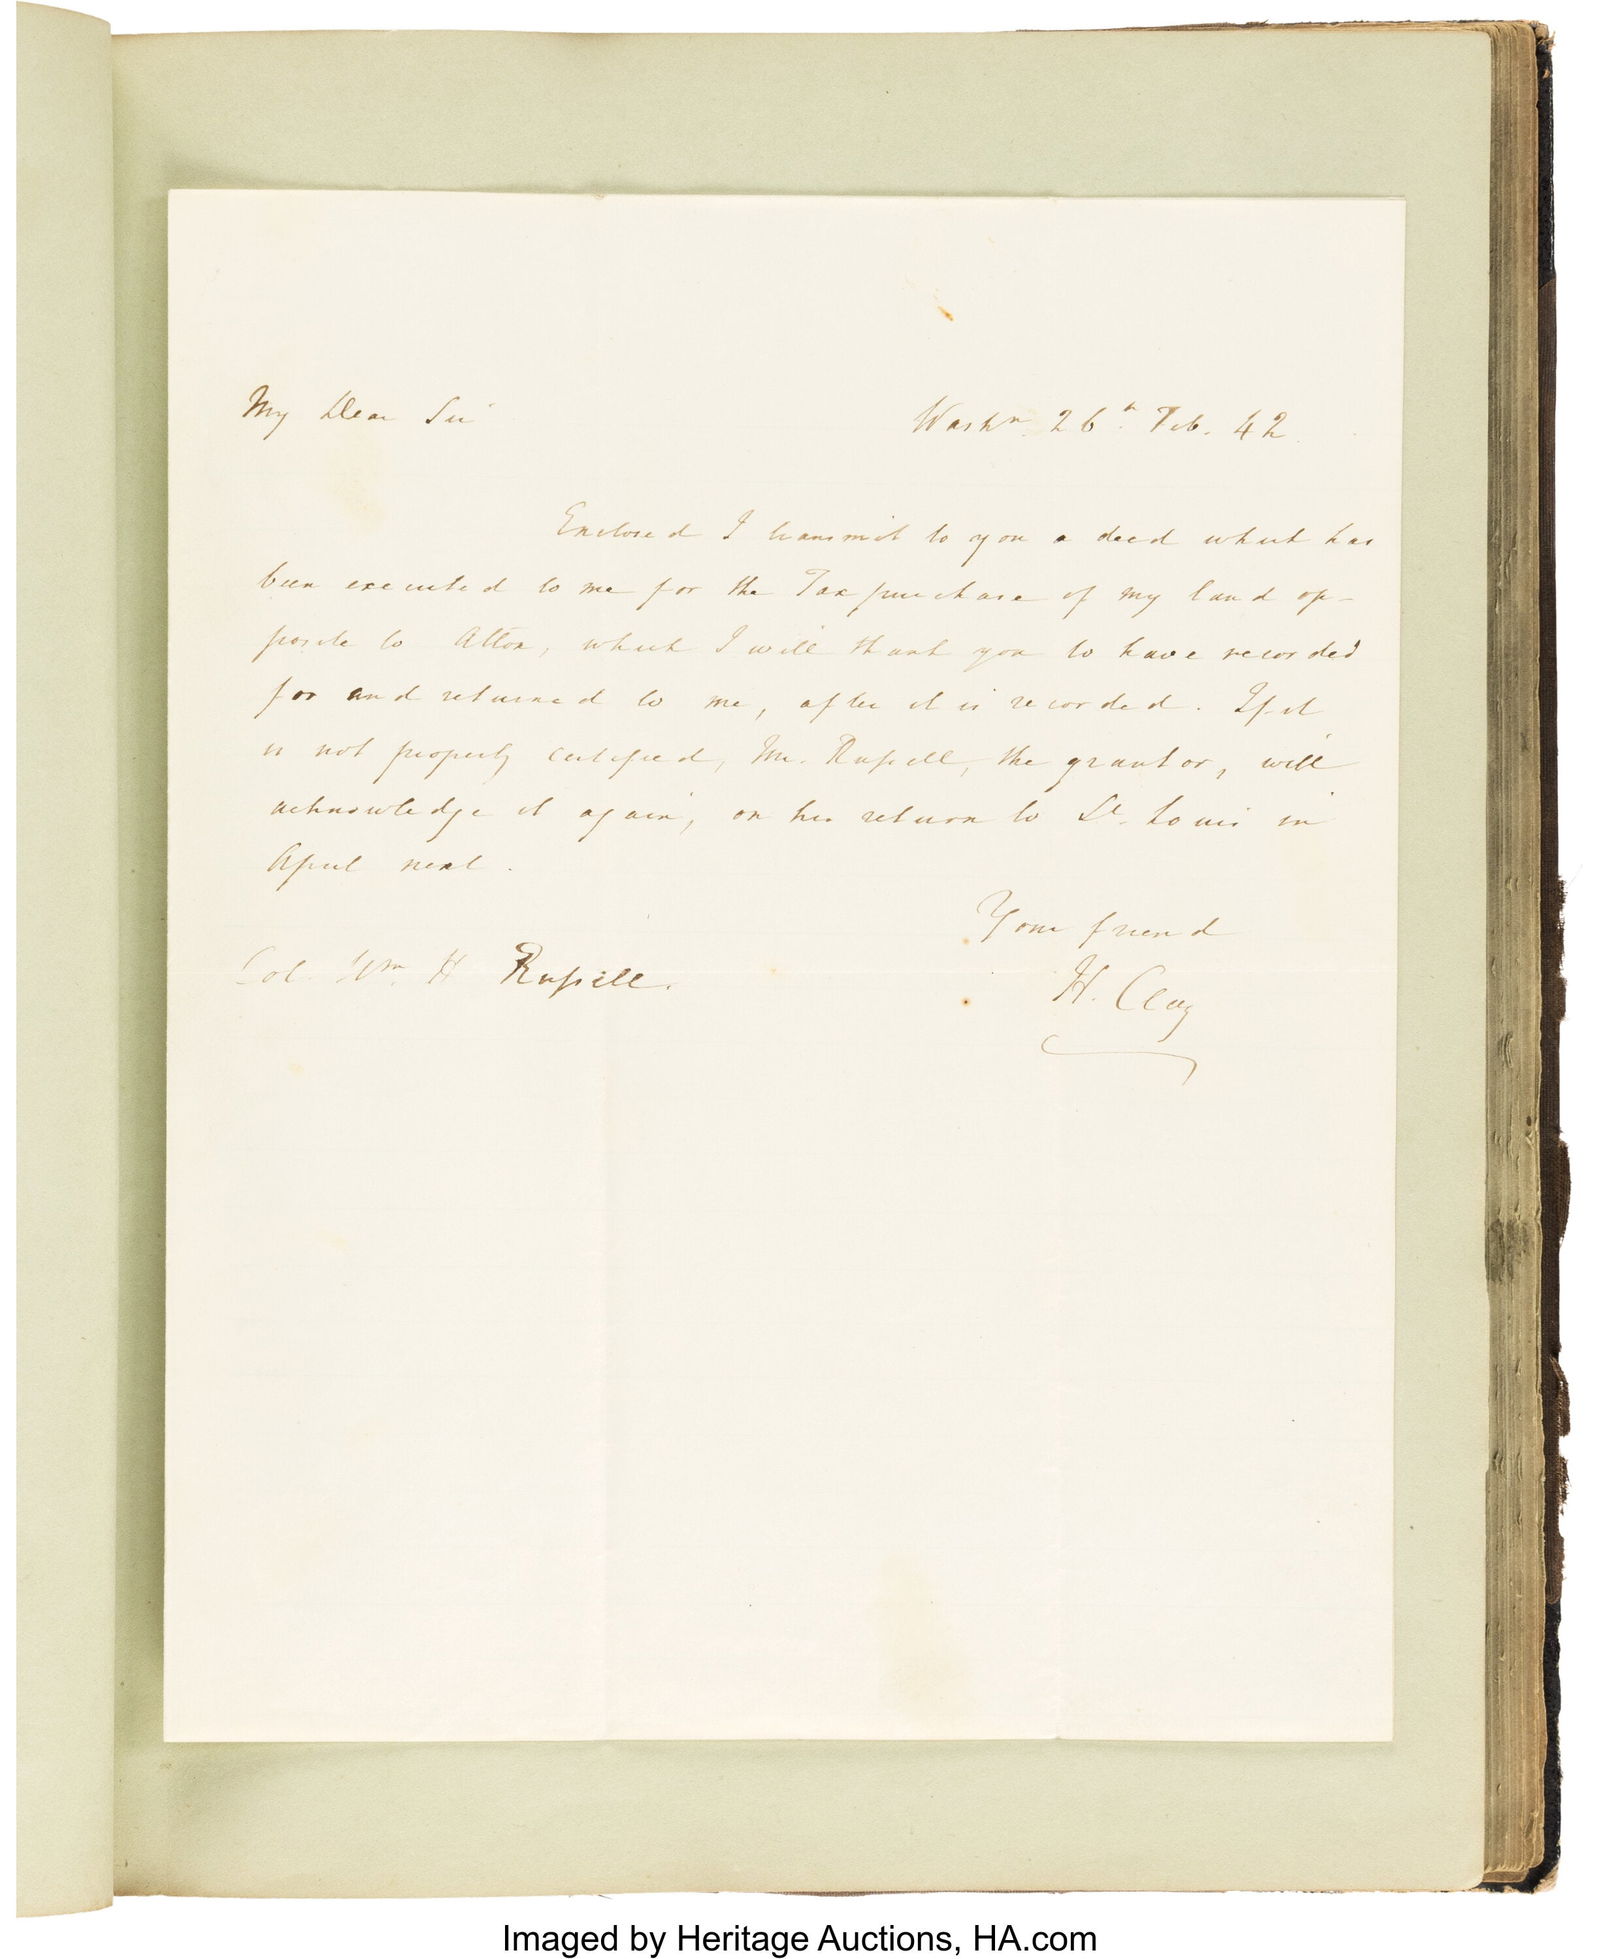 My Dear Sir
Washn. 26h. Feb. 42.
Enclosed I transmit to you a deed which has
been executed to me for the Tax purchase of my land op-
posite to Alton, which I will thank you to have recorded
for and returned to me, after it is recorded. If it
is not properly certified, Mr. Russell, the grantor, will
acknowledge it again, on his return to St. Louis in
April next.
Your friend
H. Clay
Col. Wm. H Russell.
Imaged by Heritage Auctions, HA.com